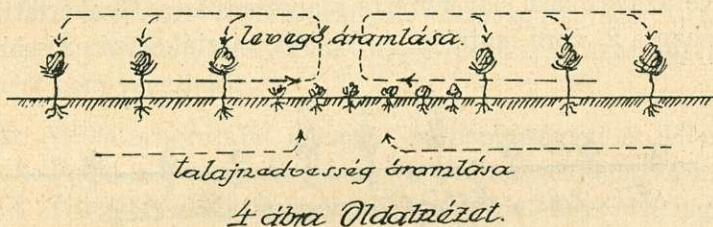 levegő áramlása.
talajnedvesség áramlása
4 ábra Oldalnézet.